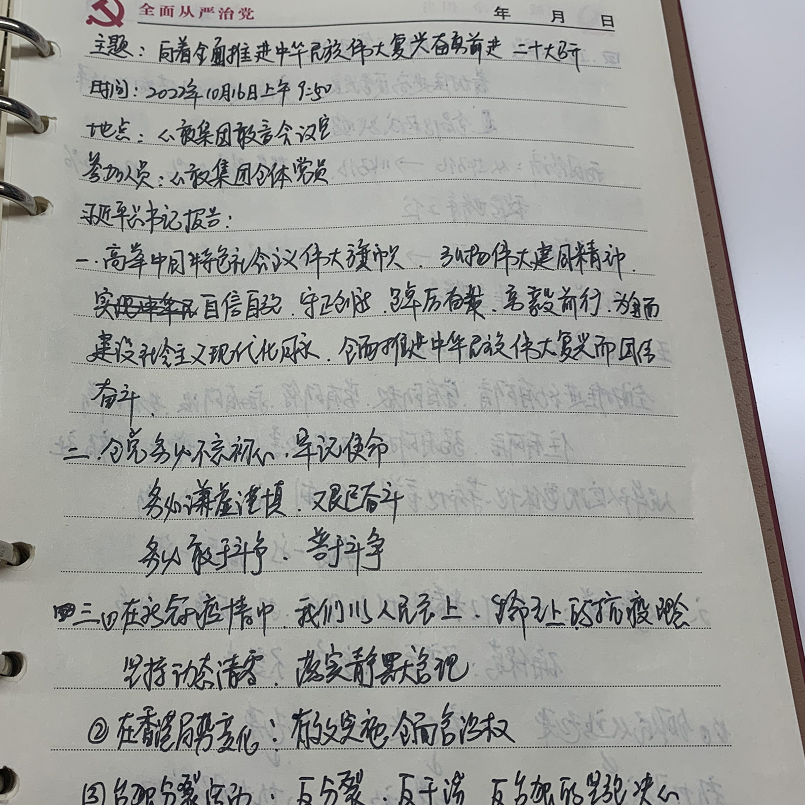 全面从严治党 年 月 日
主题：向着全面推进中华民族伟大复兴奋勇前进 二十大研
时间：2022年10月16日上午9:50
地点：公教集团教育会议室
参加人员：公教集团全体党员
习近平总书记报告：
一．高举中国特色社会主义伟大旗帜．弘扬伟大建党精神．
自信自强．守正创新．踔厉奋发．勇毅前行．为全面
建设社会主义现代化国家．全面推进中华民族伟大复兴而团结
奋斗．
二．全党务必不忘初心．牢记使命
务必谦虚谨慎．艰苦奋斗
务必敢于斗争．善于斗争
三①在疫情中．我们以人民至上．生命至上的抗疫理念
坚持动态清零．落实静默管理
②在香港局势变化：有效实施全面管治权
③台独分裂活动：反分裂．反干涉．反台独的坚强决心